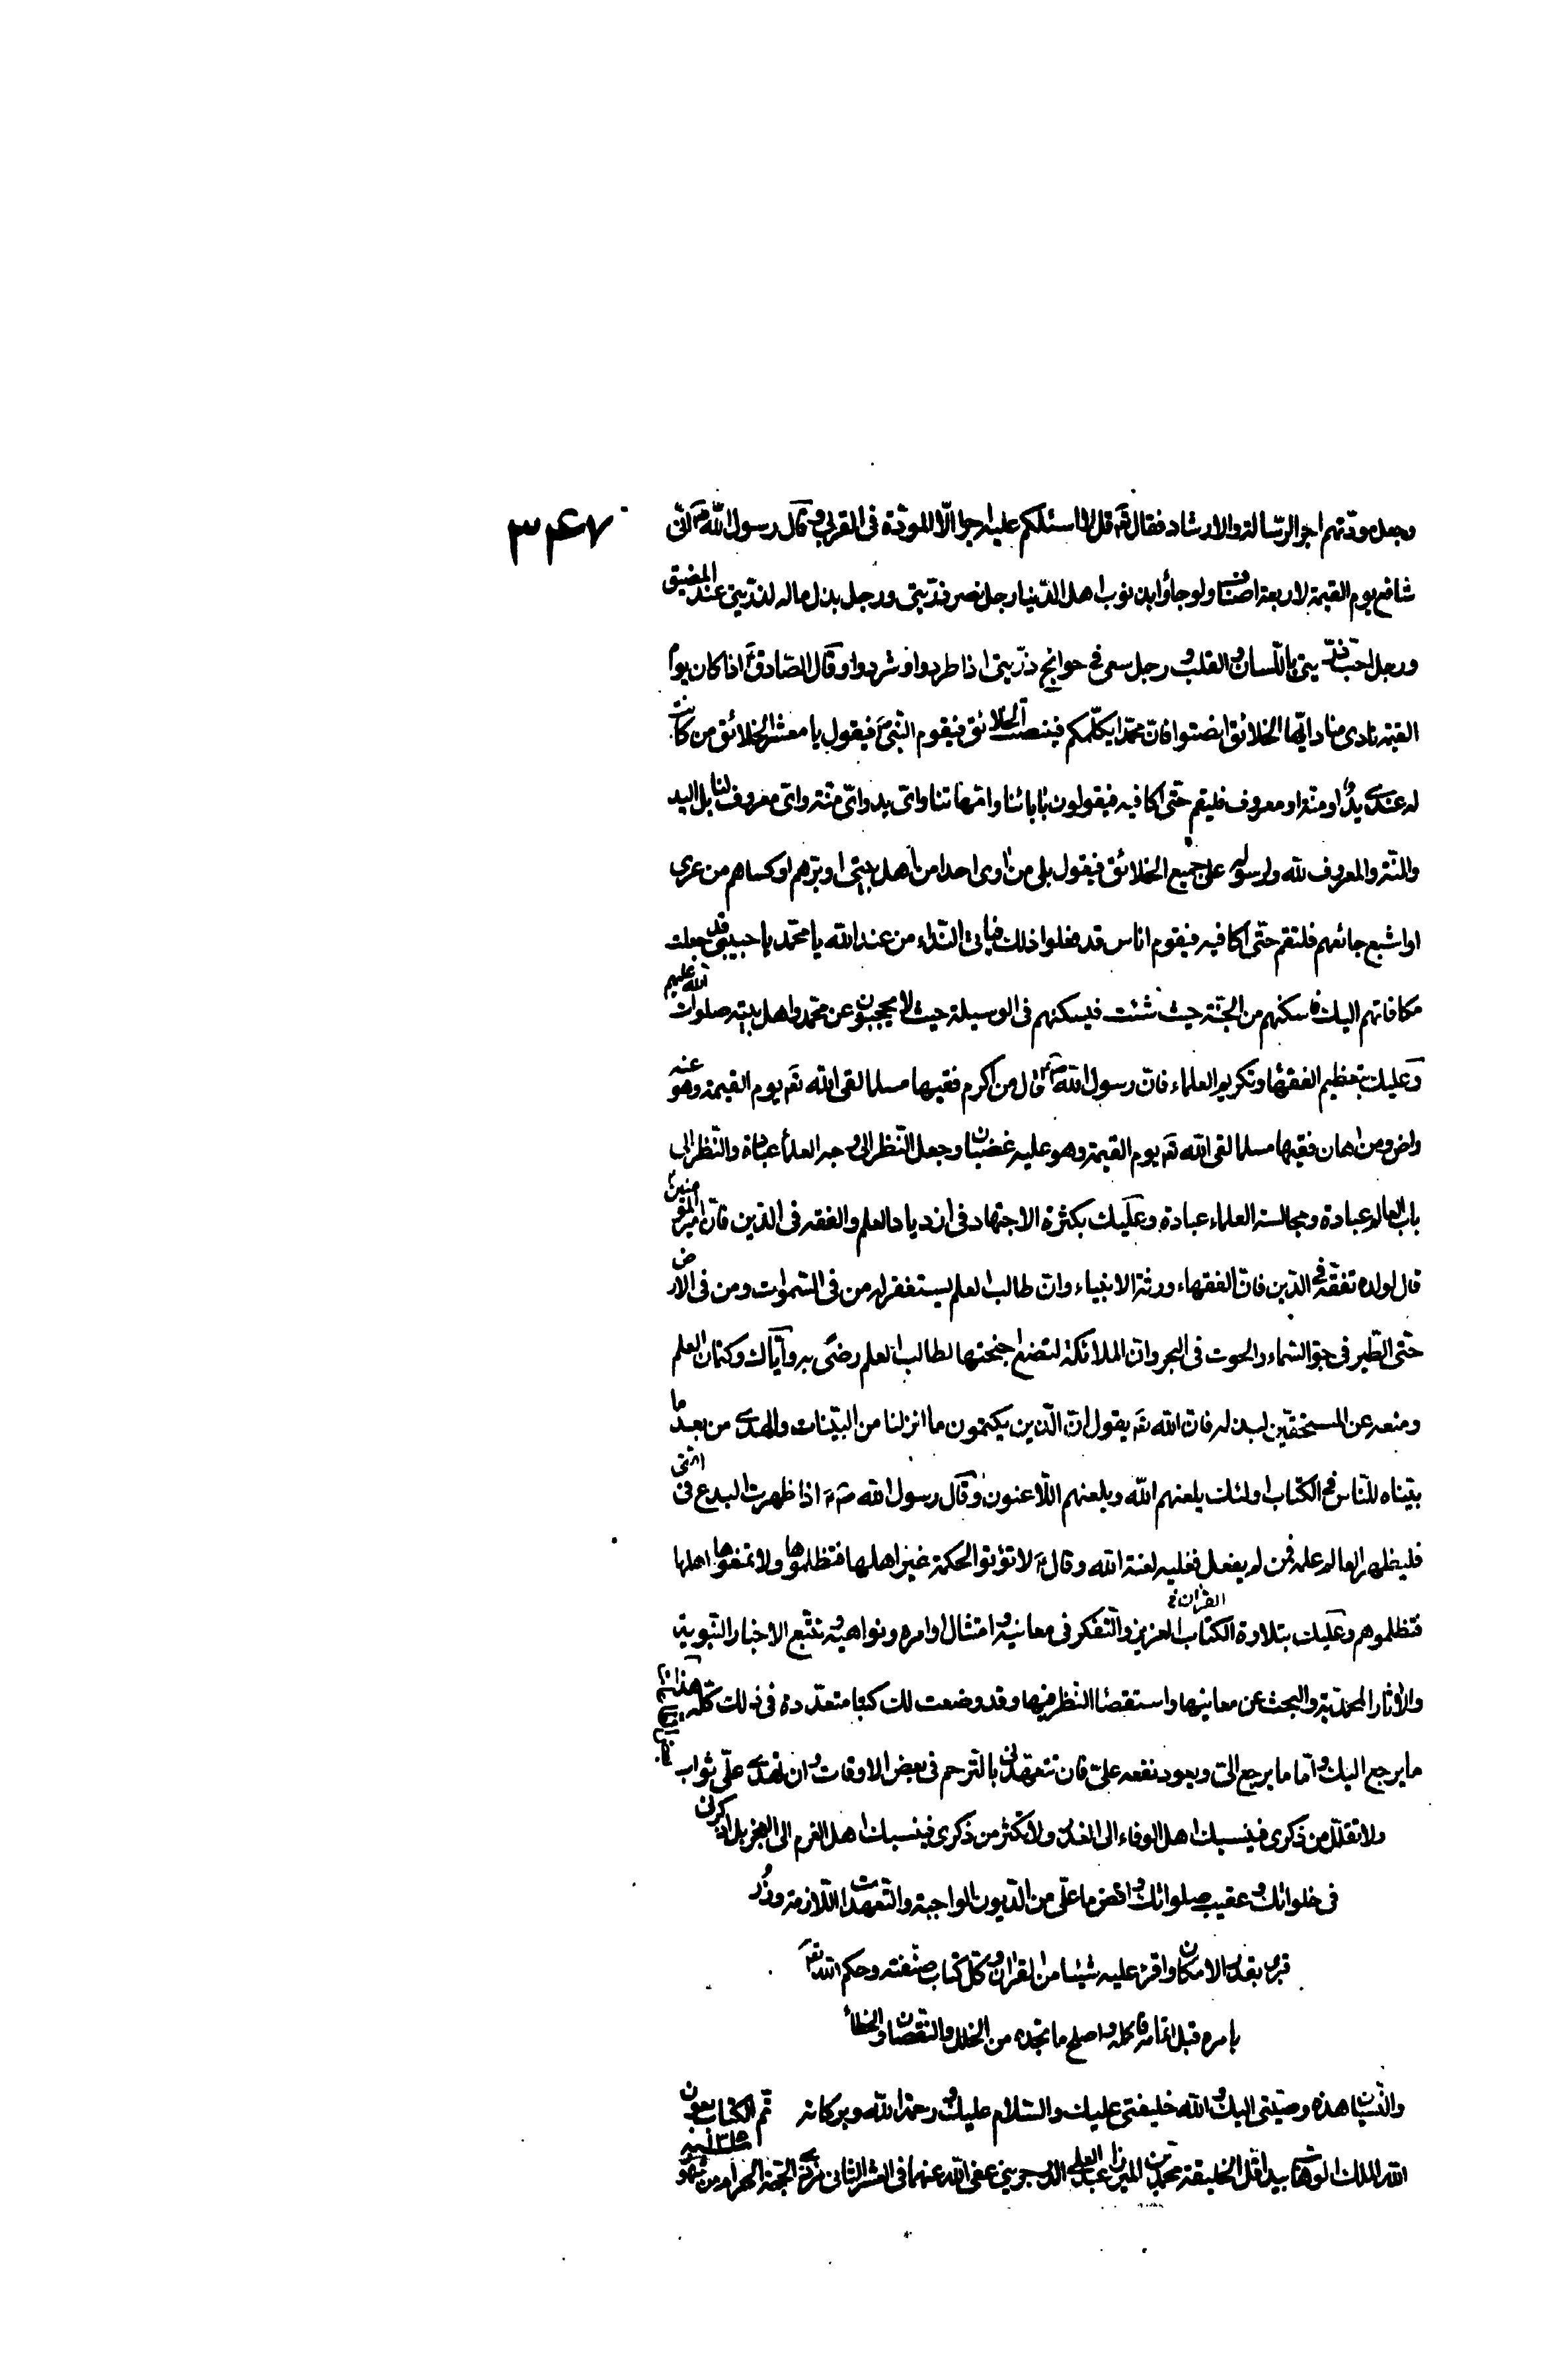 ۳۴۷
وجعل مودّتهم اجر الرّسالة والارشاد فقال تعَ قل لا اسئلكم عليه اجرا الّا المودّة فى القربى وقال رسول اللهؐ انّى
شافع يوم القيمة لاربعة اصناف ولو جاؤا بذنوب اهل الدّنيا رجل نصر ذرّيتى ورجل بذل ماله لذرّيتى عند المضيق
ورجل احبّ ذرّيتى باللّسان والقلب ورجل سعى فى حوائج ذرّيتى اذا طردوا او شردوا وقال الصّادقؑ اذا كان يوم
القيمة نادى مناد ايّها الخلائق انصتوا فانّ محمّدا يكلّمكم فينصت الخلائق فيقوم النّبىؐ فيقول يا معشر الخلائق من كانت
له عندى يدٌ او منّة او معروف فليقم حتّى اكافيه فيقولون بآبائنا وامّهاتنا واىّ يد واىّ منّة واىّ معروف لنا بل اليد
والمنّة والمعروف لله ولرسوله على جميع الخلائق فيقول بلى من اوى احدا من اهل بيتى او برّهم او كساهم من عرى
او اشبع جائعهم فليقم حتّى اكافيه فيقوم اناس قد فعلوا ذلك فيأتى النّداء من عند الله يا محمّد يا حبيبى قد جعلت
مكافاتهم اليك فاسكنهم من الجنّة حيث شئت فيسكنهم فى الوسيلة حيث لا يحجبون عن محمّد واهل بيته صلوات الله عليهم
وعليك بتعظيم الفقهاء وتكريم العلماء فانّ رسول اللهؐ قال من اكرم فقيها مسلما لقى الله تعَ يوم القيمة وهو عنه
راض ومن اهان فقيها مسلما لقى الله تعَ يوم القيمة وهو عليه غضبان وجعل النّظر الى وجه العلماء عبادة والنّظر الى
باب العالم عبادة ومجالسة العلماء عبادة وعليك بكثرة الاجتهاد فى ازدياد العلم والفقه فى الدّين فانّ امير المؤمنين
قال لولده تفقّه فى الدّين فانّ الفقهاء ورثة الانبياء وانّ طالب العلم ليستغفر له من فى السّموات ومن فى الارض
حتّى الطّير فى جوّ السّماء والحوت فى البحر وانّ الملائكة لتضع اجنحتها لطالب العلم رضى به وايّاك وكتمان العلم
ومنعه عن المستحقّين لبذله فانّ الله تعَ يقول انّ الّذين يكتمون ما انزلنا من البيّنات والهدى من بعد ما
بيّناه للنّاس فى الكتاب اولئك يلعنهم الله ويلعنهم اللّاعنون وقال رسول الله صؐ اذا ظهرت البدع فى امّتى
فليظهر العالم علمه فمن لم يفعل فعليه لعنة الله وقالؑ لا تؤتوا الحكمة غير اهلها فتظلموها ولا تمنعوها اهلها
فتظلموهم وعليك بتلاوة الكتاب العزيز والتّفكر فى معانيه وامتثال اوامره ونواهيه وتتبّع الاخبار النّبوية
والآثار المحمّدية والبحث عن معانيها واستقصاء النّظر فيها وقد وضعت لك كتبا متعدّدة فى ذلك كلّه هذا
ما يرجع اليك وامّا ما يرجع الىّ ويعود نفعه علىّ فان تتعهّدنى بالتّرحم فى بعض الاوقات وان تهدى علىّ ثواب
ولا تقلّل من ذكرى فينسبك اهل الوفاء الى الغدر ولا تكثر من ذكرى فينسبك اهل الغرم الى العجز بل اذكرنى
فى خلواتك وعقيب صلواتك واقض ما علىّ من الدّيون الواجبة والتّعهدات اللّازمة وزُر
قبرى بقدر الامكان واقرء عليه شيئا من القرآن وكلّ كتاب صنّفته وحكم الله تعَ
بامره قبل اتمامه فاكمله واصلح ما تجده من الخلل والنّقصان والخطأ
والنّسيان هذه وصيّتى اليك والله خليفتى عليك والسّلام عليك ورحمة الله وبركاته تمّ الكتاب بعون
الله الملك الوهّاب بيد اقلّ الخليقة محمّد بن الميرزا عبد العلى عفى الله عنهما فى العشر الثانى من ذى الحجّة الحرام من شهور